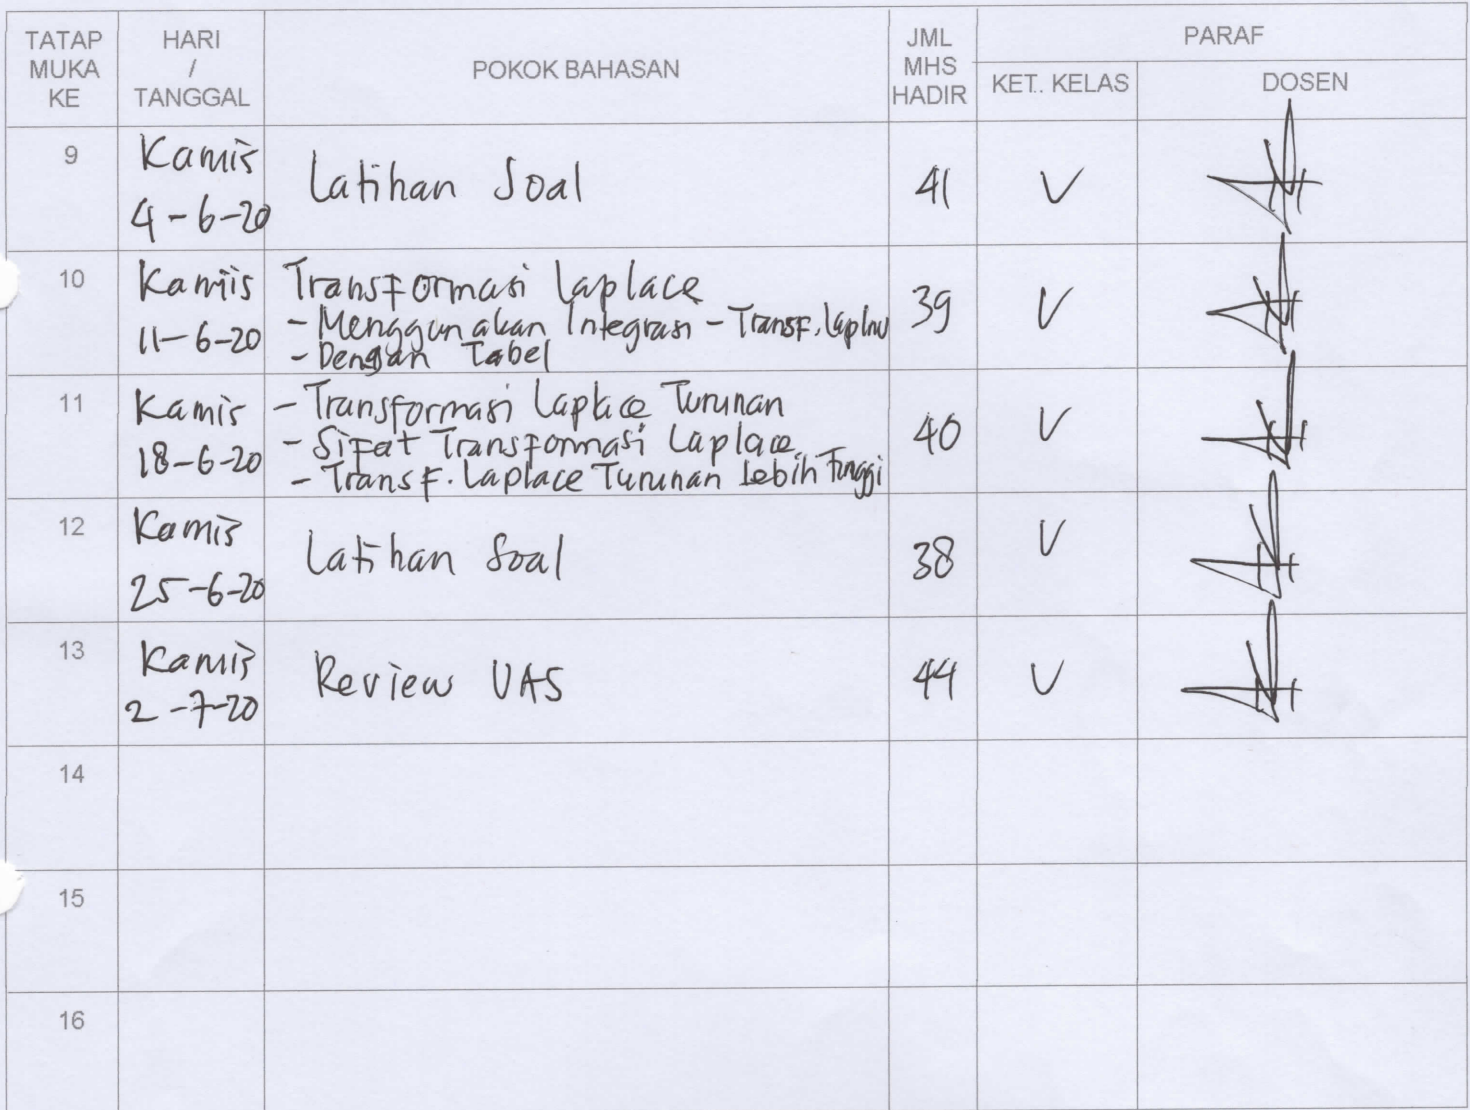 TATAP MUKA KE
HARI / TANGGAL
POKOK BAHASAN
JML MHS HADIR
PARAF
KET.. KELAS
DOSEN
9
Kamis
4-6-20
Latihan Soal
41
V
10
Kamis
11-6-20
Transformasi Laplace
- Menggunakan Integrasi - Transf.
- Dengan Tabel
39
V
11
Kamis
18-6-20
- Transformasi Laplace Turunan
- Sifat Transformasi Laplace
- Transf. Laplace Turunan Lebih Tinggi
40
V
12
Kamis
25-6-20
Latihan Soal
38
V
13
Kamis
2-7-20
Review UAS
44
V
14
15
16